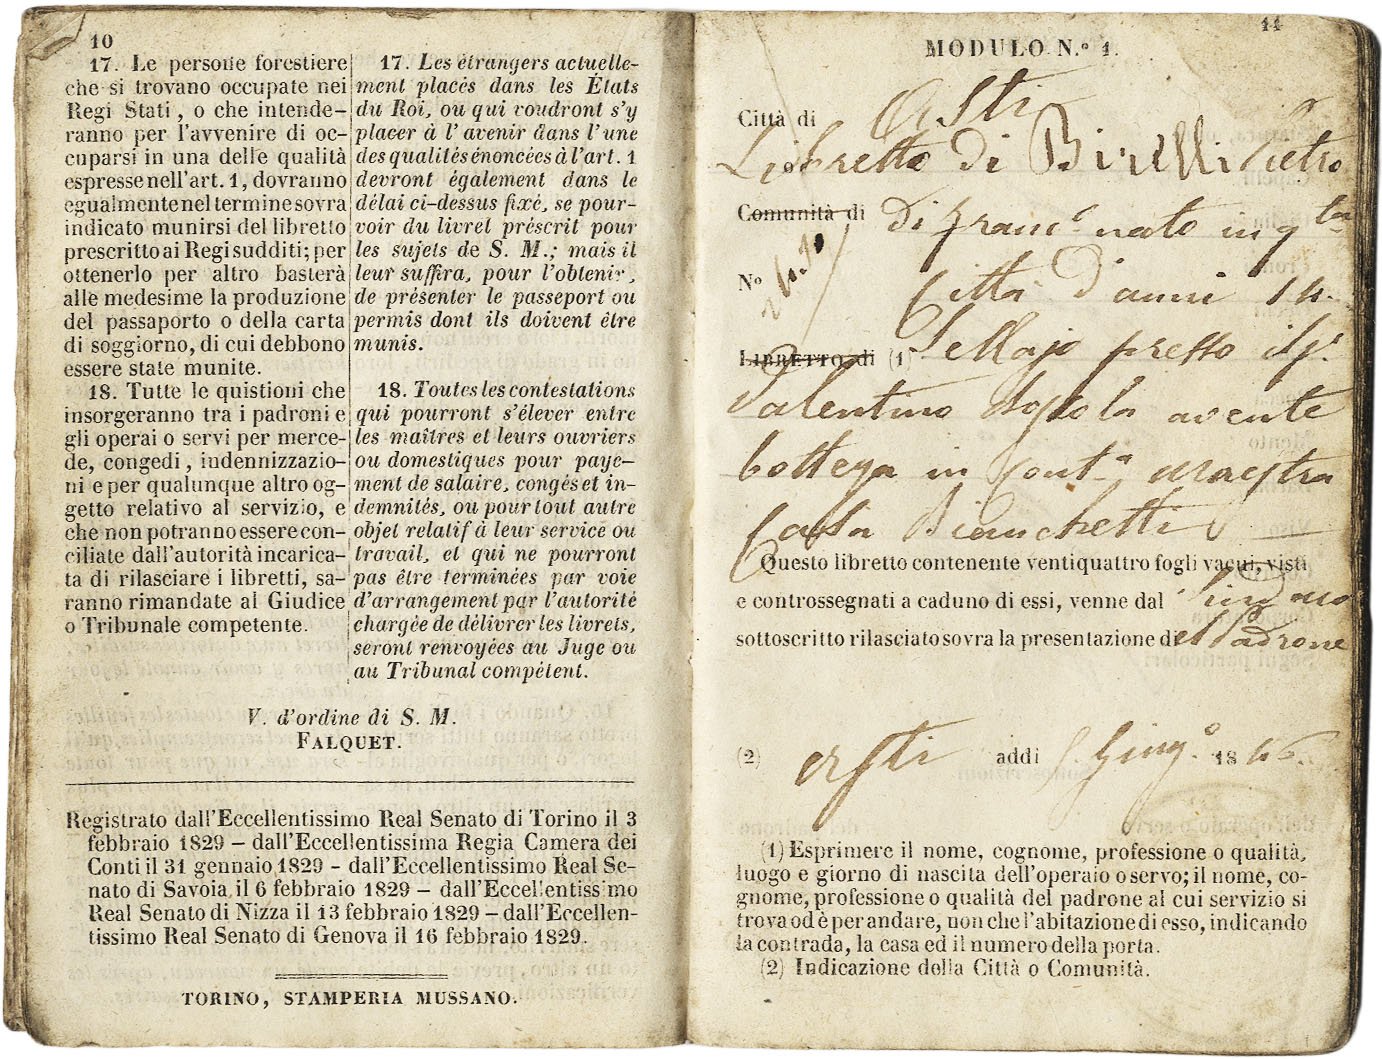 10
17. Le persone forestiere
che si trovano occupate nei
Regi Stati, o che intende-
ranno per l'avvenire di oc-
cuparsi in una delle qualità
espresse nell'art. 1, dovranno
egualmente nel termine sovra
indicato munirsi del libretto
prescritto ai Regi sudditi; per
ottenerlo per altro basterà
alle medesime la produzione
del passaporto o della carta
di soggiorno, di cui debbono
essere state munite.
18. Tutte le quistioni che
insorgeranno tra i padroni e
gli operai o servi per merce-
de, congedi, indennizzazio-
ni e per qualunque altro og-
getto relativo al servizio, e
che non potranno essere con-
ciliate dall'autorità incarica-
ta di rilasciare i libretti, sa-
ranno rimandate al Giudice
o Tribunale competente.
17. Les étrangers actuelle-
ment placés dans les États
du Roi, ou qui voudront s'y
placer à l'avenir dans l'une
des qualités énoncées à l'art. 1
devront également dans le
délai ci-dessus fixé, se pour-
voir du livret préscrit pour
les sujets de S. M.; mais il
leur suffira, pour l'obtenir,
de présenter le passeport ou
permis dont ils doivent être
munis.
18. Toutes les contestations
qui pourront s'élever entre
les maîtres et leurs ouvriers
ou domestiques pour paye-
ment de salaire, congés et in-
demnités, ou pour tout autre
objet relatif à leur service ou
travail, et qui ne pourront
pas être terminées par voie
d'arrangement par l'autorité
chargée de délivrer les livrets,
seront renvoyées au Juge ou
au Tribunal compétent.
V. d'ordine di S. M.
FALQUET.
Registrato dall'Eccellentissimo Real Senato di Torino il 3
febbraio 1829 – dall'Eccellentissima Regia Camera dei
Conti il 31 gennaio 1829 - dall'Eccellentissimo Real Se-
nato di Savoia il 6 febbraio 1829 – dall'Eccellentissimo
Real Senato di Nizza il 13 febbraio 1829 – dall'Eccellen-
tissimo Real Senato di Genova il 16 febbraio 1829.
TORINO, STAMPERIA MUSSANO.
11
MODULO N.º 1.
Città di Asti
Libretto di Birelli Pietro
Comunità di di Franc. nato in qta
Nº Città d'anni 14.
LIBRETTO di (1) Sellajo presso il Sr.
Valentino avente
bottega in Conta maestra
Casa Bianchetti
Questo libretto contenente ventiquattro fogli vacui, visti
e controssegnati a caduno di essi, venne dal Sindaco
sottoscritto rilasciato sovra la presentazione del Padrone
(2) Asti addì Giugº 1846.
(1) Esprimere il nome, cognome, professione o qualità,
luogo e giorno di nascita dell'operaio o servo; il nome, co-
gnome, professione o qualità del padrone al cui servizio si
trova od è per andare, non che l'abitazione di esso, indicando
la contrada, la casa ed il numero della porta.
(2) Indicazione della Città o Comunità.